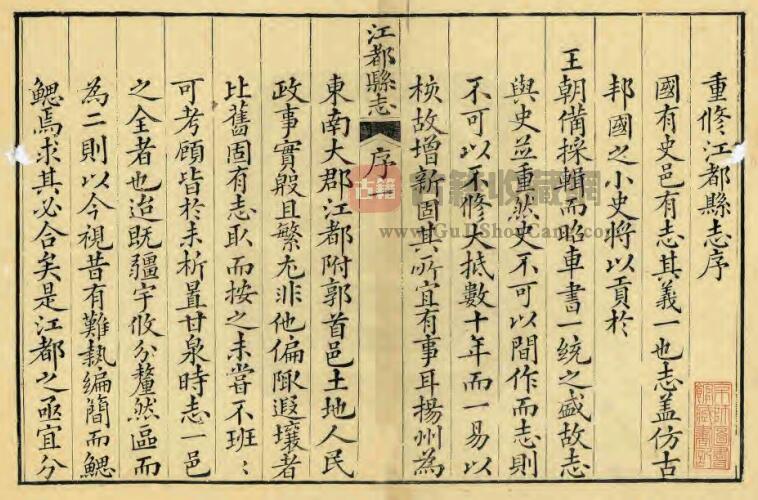 重修江都縣志序
國有史邑有志其義一也志盖仿古
邦國之小史將以貢於
王朝備採輯而昭車書一統之盛故志
與史並重然史不可以間作而志則
不可以不修大抵數十年而一易以
核故增新固其所宜有事耳揚州為
江都縣志
序
一
東南大郡江都附郭首邑土地人民
政事實殷且繁尤非他偏陬遐壤者
比舊固有志取而按之未嘗不班:
可考顧皆於未析置甘泉時志一邑
之全者也迨既疆宇攸分釐然區而
為二則以今視昔有難執編簡而鰓
鰓焉求其必合矣是江都之亟宜分
古籍
古籍收藏網
www.GuJiShouCang.com